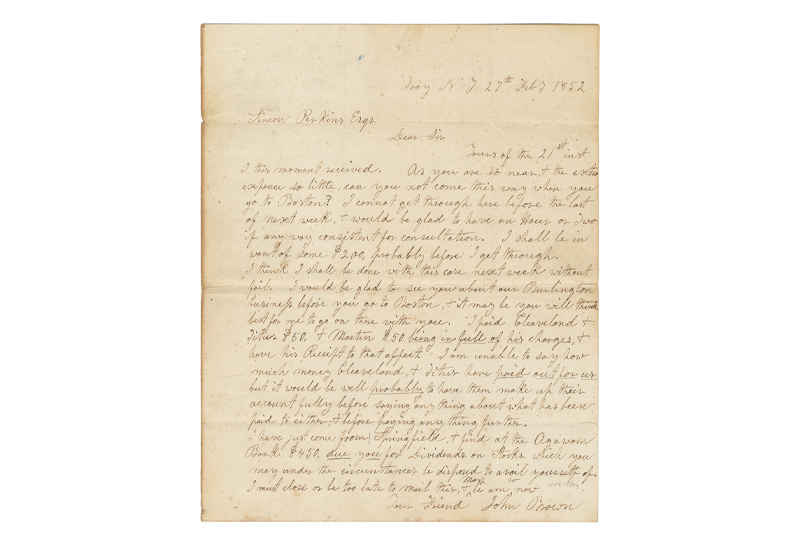 Troy N. Y. 27th Feby 1852
Simon Perkins Esqr
Dear Sir
Yours of the 21st inst
I this moment received. As you are so near, & the extra
expence so little, can you not come this way when you
go to Boston? I cannot get through here before the last
of next week, & would be glad to have an Hour or Two
if any way consistent for consultation. I shall be in
want of some $200, probably before I get through.
I think I shall be done with this case next week without
fail. I would be glad to see you about our Burlington
business before you go to Boston, & it may be you will think
best for me to go on there with you. I paid Cleaveland &
Titus $50, & Martin $50 being in full of his charges, &
have his Receipt to that effect. I am unable to say how
much money Cleaveland, & Titus have paid out for us
but it would be well probably to have them make up their
account fully before saying any thing about what has been
paid to either; & before paying any thing further.
I have just come from Springfield, & find at the Agawam
Bank $450, due you for Dividends on Stocks which you
may under the circumstances be disposed to avail yourself of
I must close or be too late to mail this, &
Your Friend John Brown